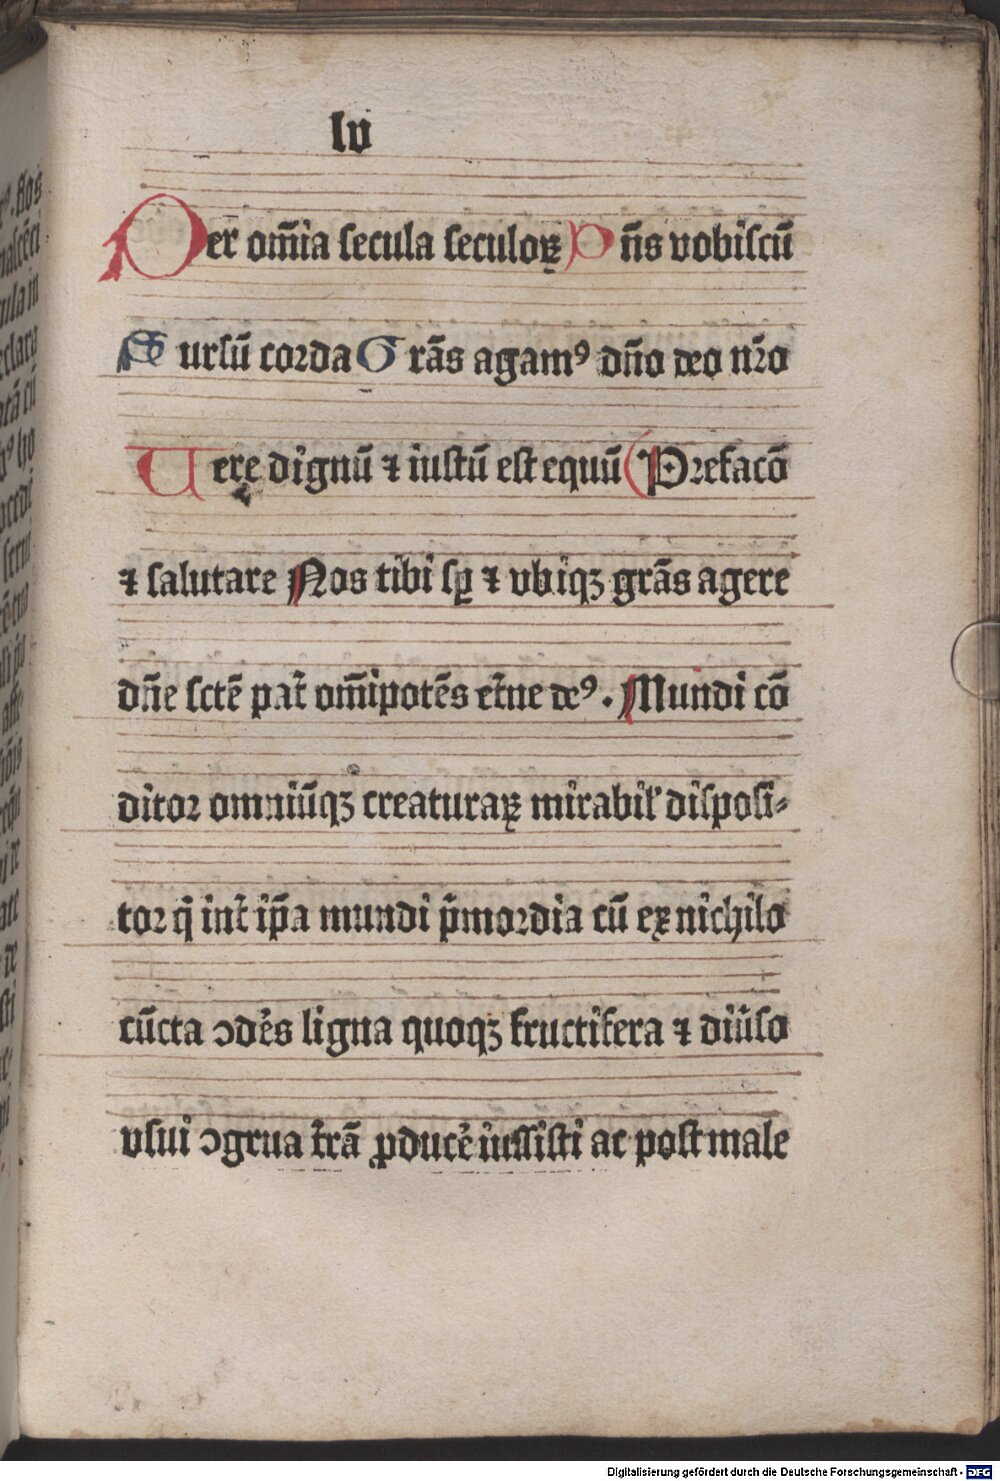 lv
Per om̄ia secula seculoꝝ Dn̄s vobiscū
Sursū corda Grās agamꝰ dn̄o deo nr̄o
Uere dignū ⁊ iustū est equū Prefacō
⁊ salutare Nos tibi sꝑ ⁊ vbiqꝫ grās agere
dn̄e sctē pat̄ om̄ipotēs et̄ne deꝰ. Mundi cō
ditor omniūqꝫ creaturaꝝ mirabil' disposi⸗
tor q̄ int̄ ip̄a mundi p̄mordia cū ex nichilo
cūcta ↄdēs ligna quoqꝫ fructifera ⁊ diūso
vsui ↄgrua t̄rā ꝓducē iussisti ac post male
Digitalisierung gefördert durch die Deutsche Forschungsgemeinschaft - DFG